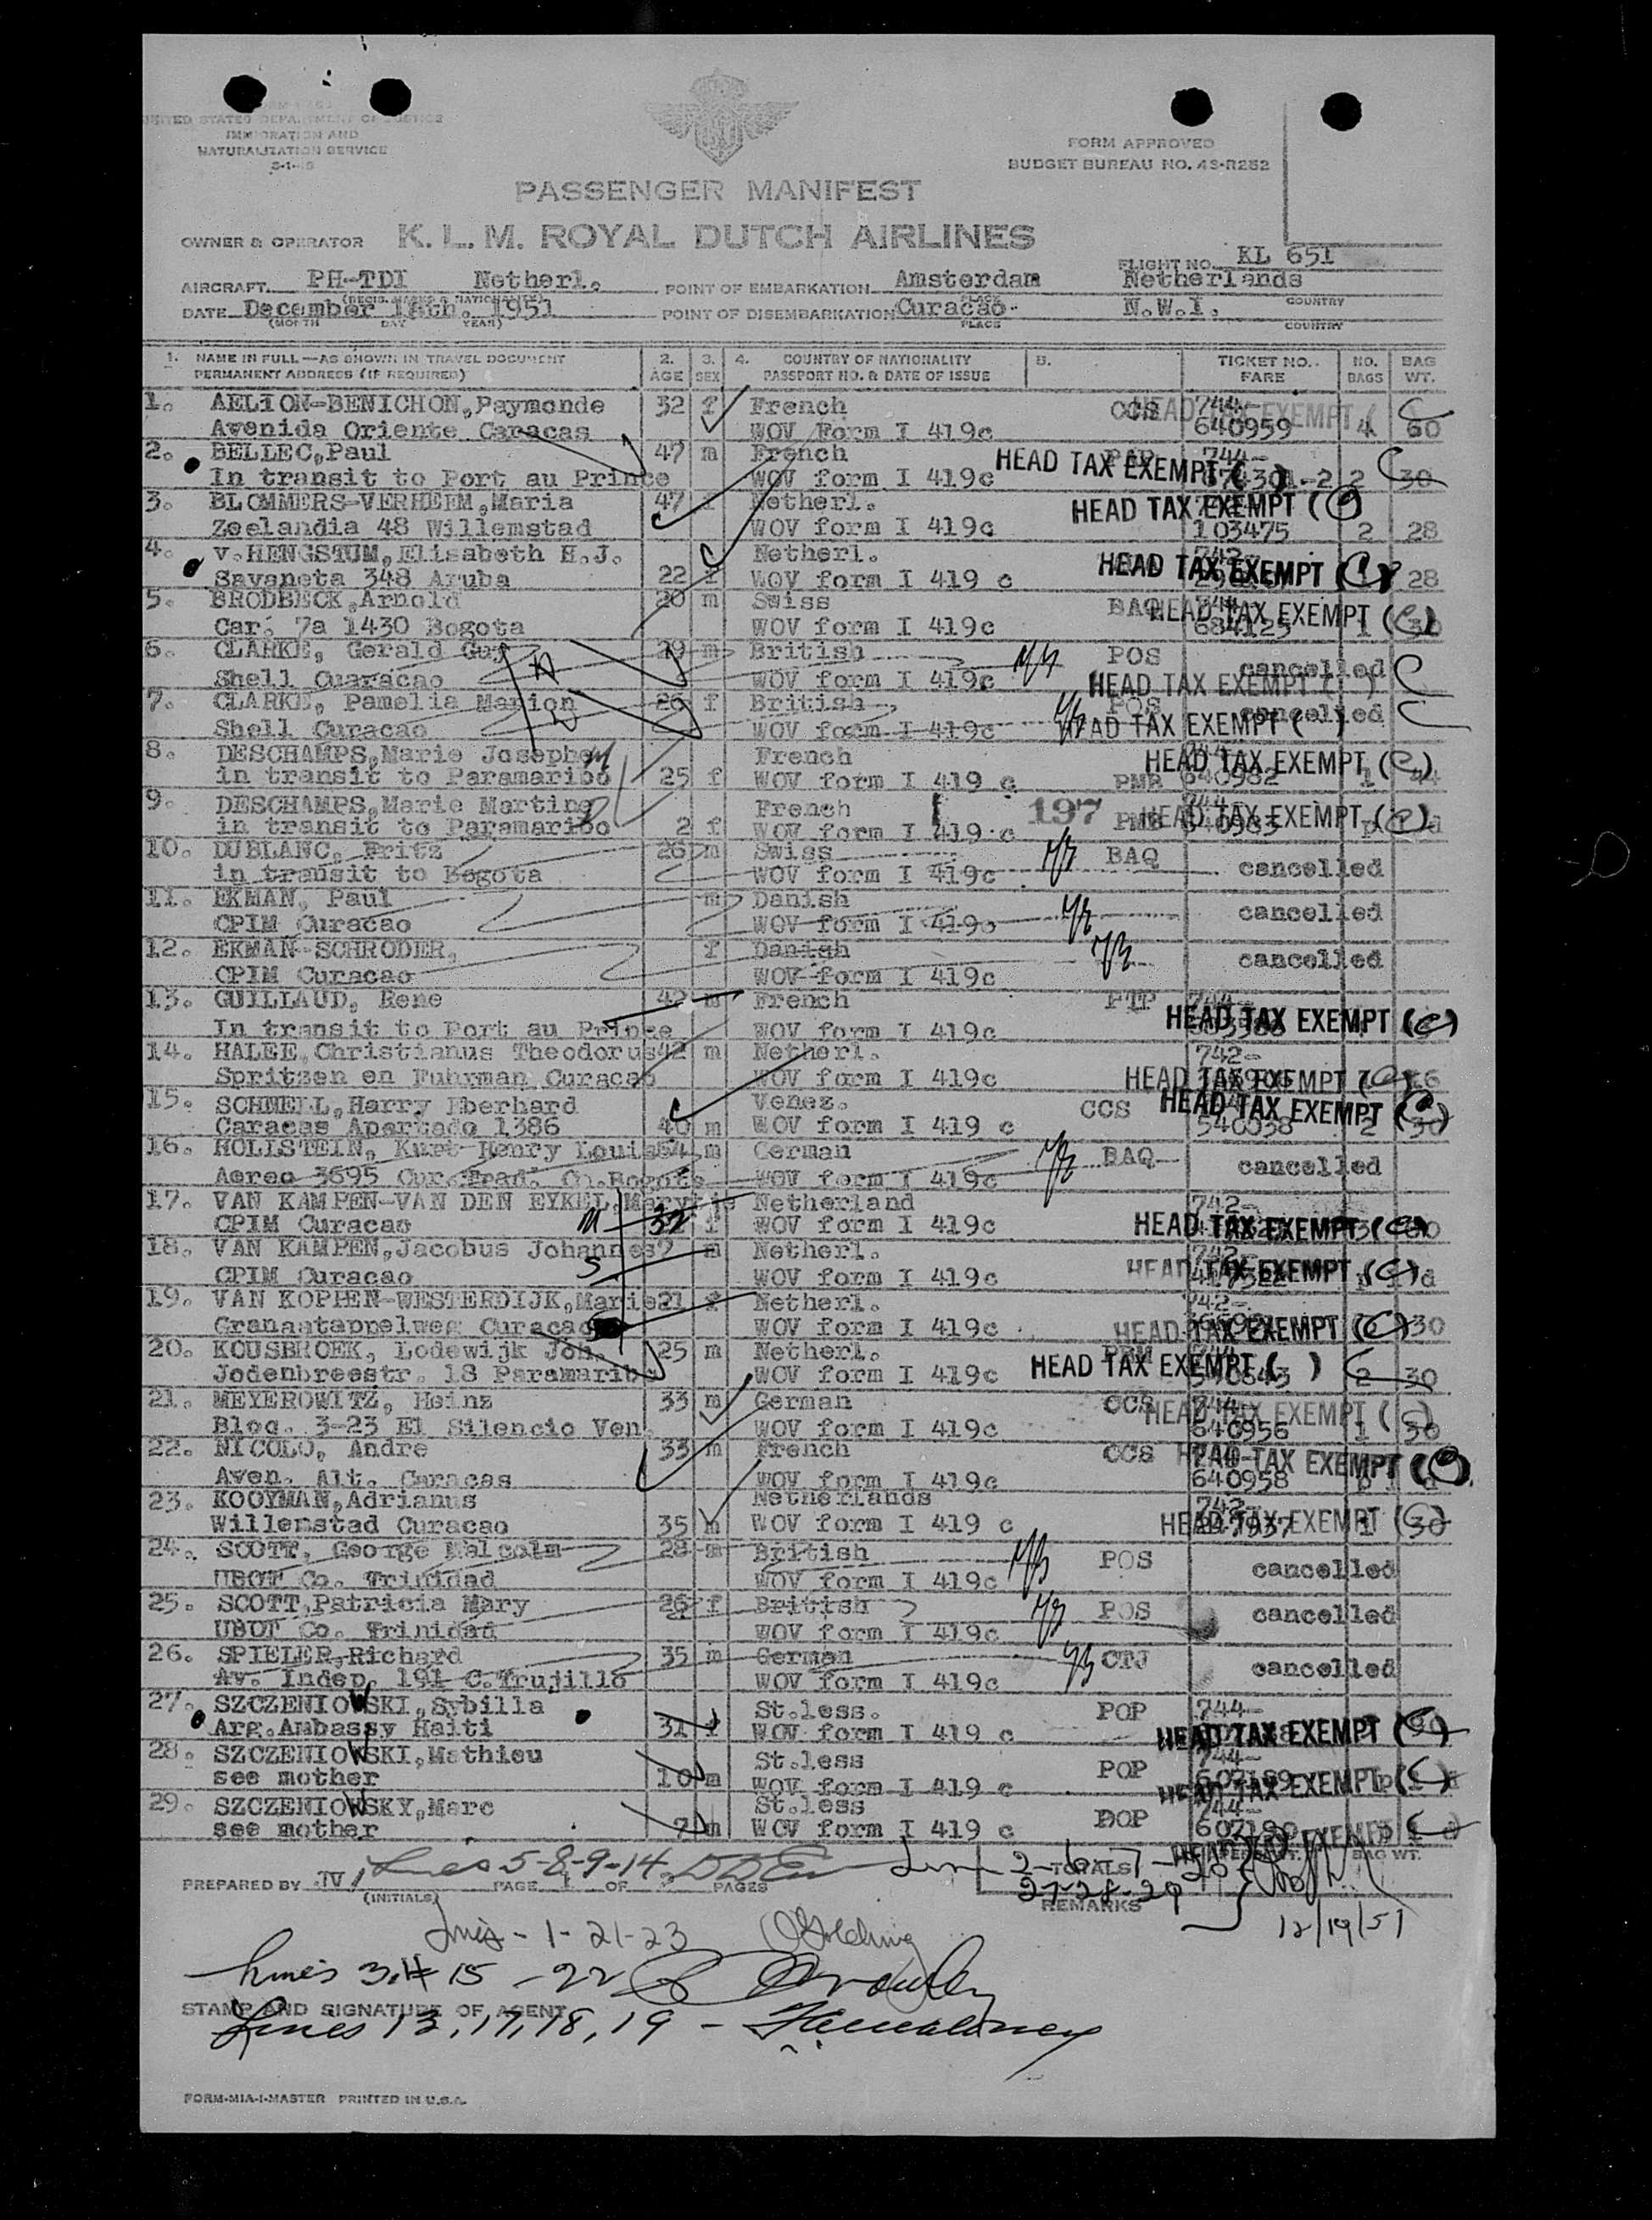 UNITED STATES DEPARTMENT OF JUSTICE
IMMIGRATION AND
NATURALIZATION SERVICE
FORM APPROVED
BUDGET BUREAU NO. 43-R252
PASSENGER MANIFEST
OWNER & OPERATOR K. L. M. ROYAL DUTCH AIRLINES
FLIGHT NO. KL 651
AIRCRAFT. PH-TDI Netherl. POINT OF EMBARKATION Amsterdam Netherlands
(REGIS. MARKS & NATIONALITY) PLACE COUNTRY
DATE December 18th. 1951 POINT OF DISEMBARKATION Curacao. N.W.I.
(MONTH DAY YEAR) PLACE COUNTRY
1. NAME IN FULL—AS SHOWN IN TRAVEL DOCUMENT 2. 3. 4. COUNTRY OF NATIONALITY 5. TICKET NO. NO. BAG
PERMANENT ADDRESS (IF REQUIRED) AGE SEX PASSPORT NO. & DATE OF ISSUE FARE BAGS WT.
1. AELION-BENICHON,Raymonde 32 f French CCS 744- HEAD TAX EXEMPT
Avenida Oriente Caracas WOV Form I 419c 640959 4 60
2. BELLEC,Paul 47 m French 744- HEAD TAX EXEMPT ( )
In transit to Port au Prince WOV form I 419c 2 30
3. BLOMMERS-VERHEEM,Maria 47 f Netherl. HEAD TAX EXEMPT
Zeelandia 48 Willemstad WOV form I 419c 103475 2 28
4. v.HENGSTUM,Elisabeth H.J. Netherl. 742- HEAD TAX EXEMPT
Savaneta 348 Aruba 22 f WOV form I 419 c 28
5. BRODBECK,Arnold 20 m Swiss BAQ 744- HEAD TAX EXEMPT (C)
Car. 7a 1430 Bogota WOV form I 419c 684123 1 30
6. CLARKE, Gerald Guy 29 m British POS cancelled
Shell Cuaracao WOV form I 419c HEAD TAX EXEMPT ( )
7. CLARKE, Pamelia Marion 26 f British POS cancelled
Shell Curacao WOV form I 419c HEAD TAX EXEMPT ( )
8. DESCHAMPS,Marie Josephe French HEAD TAX EXEMPT (C)
in transit to Paramaribo 25 f WOV form I 419 c PMB 640982 1 44
9. DESCHAMPS,Marie Martine French 197 744- HEAD TAX EXEMPT (C)
in transit to Paramaribo 2 f WOV form I 419 c PMB 640983
10. DUBLANC, Fritz 26 m Swiss BAQ cancelled
in transit to Bogota WOV form I 419c
11. EKMAN, Paul m Danish cancelled
CPIM Curacao WOV form I 419c
12. EKMAN-SCHRODER, f Danish cancelled
CPIM Curacao WOV form I 419c
13. GUILLAUD, Rene 42 m French PTP 744-
In transit to Port au Prince WOV form I 419c HEAD TAX EXEMPT (C)
14. HALEE,Christianus Theodorus 42 m Netherl. 742-
Spritzen en Fuhrman Curacao WOV form I 419c HEAD TAX EXEMPT (C)
15. SCHNELL,Harry Eberhard Venez. CCS HEAD TAX EXEMPT (C)
Caracas Apartado 1386 40 m WOV form I 419 c 540038 2 30
16. HOLLSTEIN, Kurt Henry Louis 54 m German BAQ cancelled
Aereo 3695 Cur.Trad. Co.Bogota WOV form I 419c
17. VAN KAMPEN-VAN DEN EYKEL,Maryt Netherland 742-
CPIM Curacao M 32 f WOV form I 419c HEAD TAX EXEMPT (C)
18. VAN KAMPEN,Jacobus Johannes 7 m Netherl. 742-
CPIM Curacao S WOV form I 419c HEAD TAX EXEMPT (C)
19. VAN KOPPEN-WESTERDIJK,Marie 21 f Netherl. 742-
Granaatappelweg Curacao WOV form I 419c HEAD TAX EXEMPT (C) 30
20. KOUSBROEK, Lodewijk Joh. 25 m Netherl. HEAD TAX EXEMPT ( )
Jodenbreestr. 18 Paramaribo WOV form I 419c 2 30
21. MEYEROWITZ, Heinz 33 m German CCS 744- HEAD TAX EXEMPT (C)
Bloq. 3-23 El Silencio Ven. WOV form I 419c 640956 1 30
22. NICOLO, Andre 33 m French CCS HEAD TAX EXEMPT (C)
Aven. Alt. Caracas WOV form I 419c 640958
23. KOOYMAN,Adrianus Netherlands 742-
Willemstad Curacao 35 m WOV form I 419 c HEAD TAX EXEMPT (C) 1 30
24. SCOTT, George Malcolm 28 m British POS cancelled
UBOT Co. Trinidad WOV form I 419c
25. SCOTT,Patricia Mary 26 f British POS cancelled
UBOT Co. Trinidad WOV form I 419c
26. SPIELER,Richard 35 m German CTJ cancelled
Av. Indep. 191 C.Trujillo WOV form I 419c
27. SZCZENIOWSKI,Sybilla St.less. POP 744-
Arg.Ambassy Haiti 31 f WOV form I 419 c HEAD TAX EXEMPT (C)
28. SZCZENIOWSKI,Mathieu St.less POP 744-
see mother 10 m WOV form I 419 c 607189 HEAD TAX EXEMPT (C)
29. SZCZENIOWSKY,Marc St.less DOP 744-
see mother 7 m WOV form I 419 c 607190 HEAD TAX EXEMPT
PREPARED BY IV Lines 5-8-9-14 PAGE 1 OF PAGES TOTALS BAG WT.
(INITIALS) 2-6-7-20
27-28-29
REMARKS
12/19/51
Lines - 1-21-23
Lines 3.4 15 - 22
STAMP AND SIGNATURE OF AGENT
Lines 13, 17, 18, 19 -
FORM-MIA-I-MASTER PRINTED IN U.S.A.